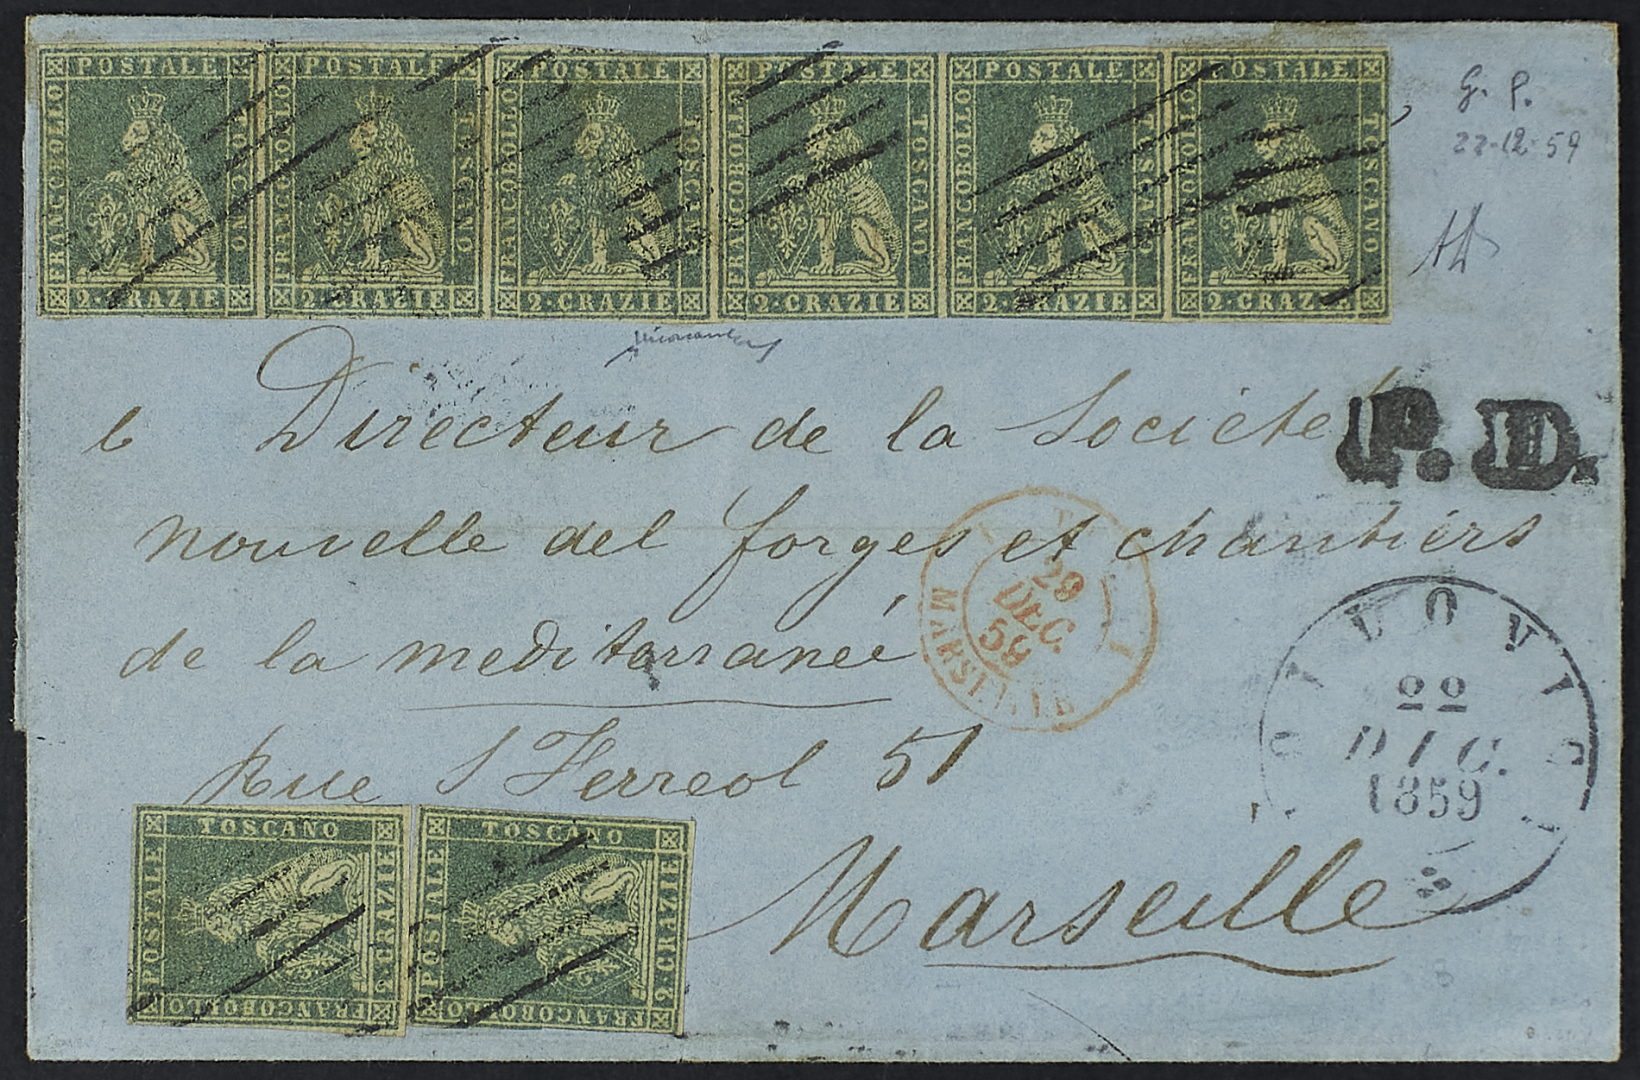 POSTALE POSTALE POSTALE POSTALE POSTALE POSTALE
FRANCOBOLLO TOSCANO FRANCOBOLLO TOSCANO FRANCOBOLLO TOSCANO FRANCOBOLLO TOSCANO FRANCOBOLLO TOSCANO FRANCOBOLLO TOSCANO
2·CRAZIE 2·CRAZIE 2·CRAZIE 2·CRAZIE 2·CRAZIE 2·CRAZIE
G. P.
22-12-59
Directeur de la Société
P.D.
nouvelle del forges et chantiers
de la mediterraneé
29
DEC.
59
MARSEILLE
22
DIC.
1859
Rue S Ferreol 51
Marseille
TOSCANO TOSCANO
POSTALE 2·CRAZIE POSTALE 2·CRAZIE
FRANCOBOLLO FRANCOBOLLO